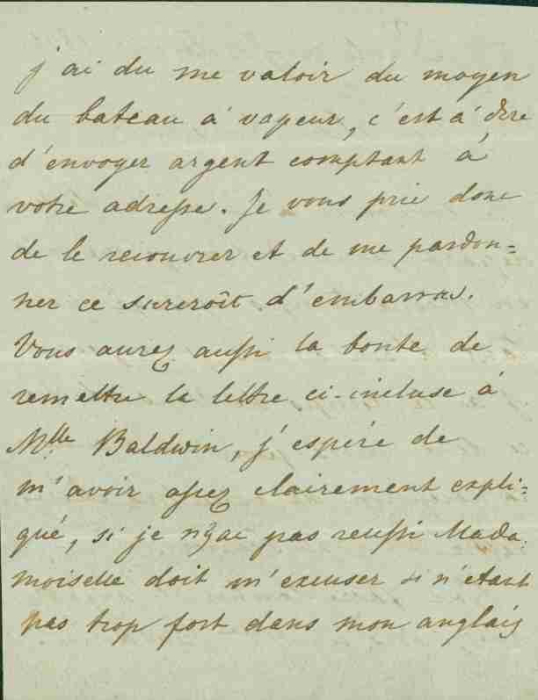 j'ai du me valoir du moyen
du bateau à vapeur, c'est à dire
d'envoyer argent comptant à
votre adresse. Je vous prie donc
de le recouvrer et de me pardon=
ner ce surcroît d'embarras.
Vous aurez aussi la bonté de
remettre la lettre ci-incluse à
Mlle Baldwin, j'espère de
m'avoir assez clairement expli=
qué, si je n'y ai pas reussi Mada
moiselle doit m'excuser si n'etant
pas trop fort dans mon anglais